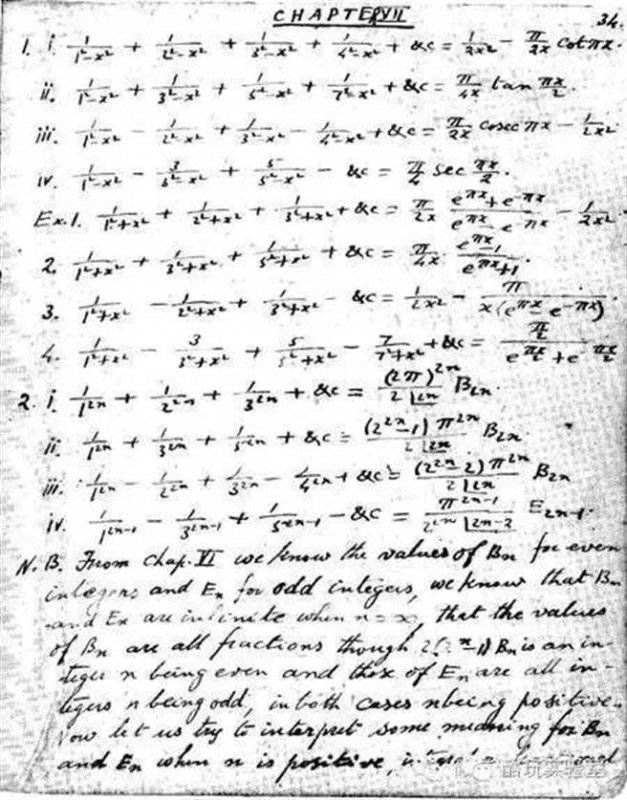 CHAPTER VII
34.
1. i. 1/(1²-x²) + 1/(2²-x²) + 1/(3²-x²) + 1/(4²-x²) + &c = 1/2x² - π/2x cot πx.
ii. 1/(1²-x²) + 1/(3²-x²) + 1/(5²-x²) + 1/(7²-x²) + &c = π/4x tan πx/2.
iii. 1/(1²-x²) - 1/(2²-x²) + 1/(3²-x²) - 1/(4²-x²) + &c = π/2x cosec πx - 1/2x²
iv. 1/(1²-x²) - 3/(3²-x²) + 5/(5²-x²) - &c = π/4 sec πx/2.
Ex.1. 1/(1²+x²) + 1/(2²+x²) + 1/(3²+x²) + &c = π/2x (e^πx + e^-πx)/(e^πx - e^-πx) - 1/2x²
2. 1/(1²+x²) + 1/(3²+x²) + 1/(5²+x²) + &c = π/4x · (e^πx - 1)/(e^πx + 1).
3. 1/(1²+x²) - 1/(2²+x²) + 1/(3²+x²) - &c = 1/2x² - π/(x(e^πx - e^-πx))
4. 1/(1²+x²) - 3/(3²+x²) + 5/(5²+x²) - 7/(7²+x²) + &c = (π/2)/(e^(πx/2) + e^(-πx/2))
2. i. 1/1^2n + 1/2^2n + 1/3^2n + &c = (2π)^2n/(2|2n) B2n.
ii. 1/1^2n + 1/3^2n + 1/5^2n + &c = (2^2n - 1)π^2n/(2|2n) B2n
iii. 1/1^2n - 1/2^2n + 1/3^2n - 1/4^2n + &c = (2^2n - 2)π^2n/(2|2n) B2n
iv. 1/1^(2n-1) - 1/3^(2n-1) + 1/5^(2n-1) - &c = π^(2n-1)/(2^2n |2n-2) E2n-1.
N. B. From chap. VI we know the values of Bn for even
integers and En for odd integers, we know that Bn
and En are infinite when n = ∞, that the values
of Bn are all fractions though 2(2^n-1)Bn is an in-
teger n being even and those of En are all in-
tegers n being odd, in both cases n being positive.
Now let us try to interpret some meaning for Bn
and En when n is positive,
酷玩实验室